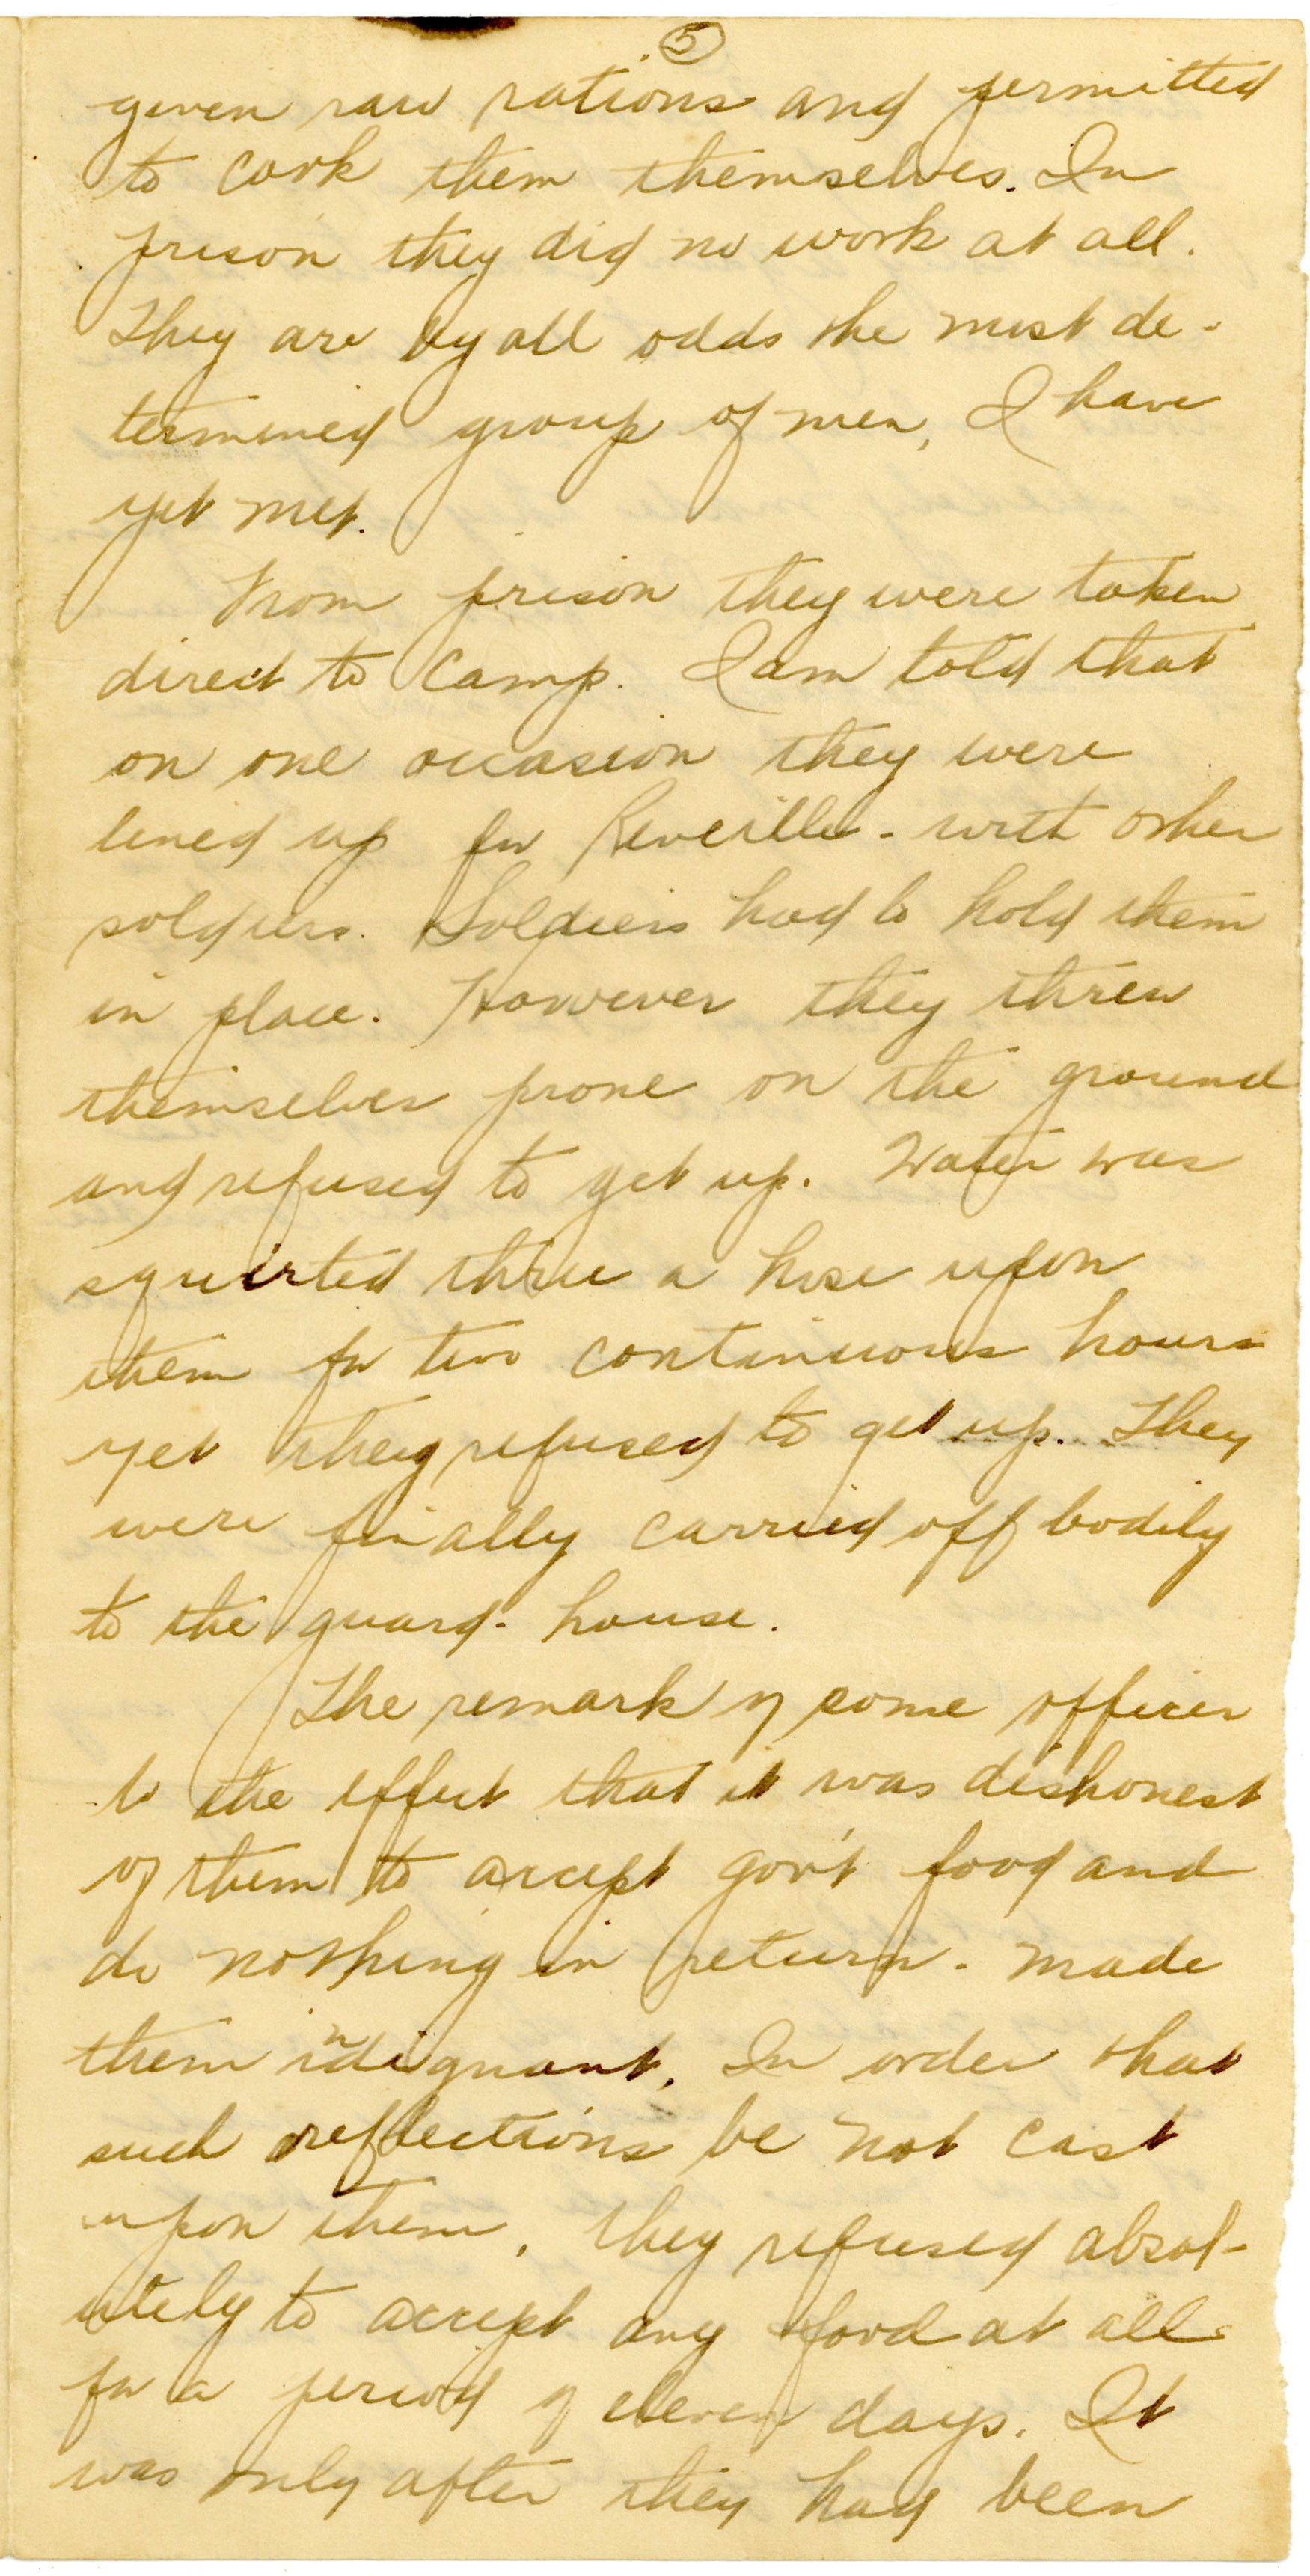 5
given raw rations and permitted
to cook them themselves. In
prison they did no work at all.
They are by all odds the most de-
termined group of men, I have
yet met.
From prison they were taken
direct to camp. I am told that
on one occasion they were
lined up for Reveille - with other
soldiers. Soldiers had to hold them
in place. However they threw
themselves prone on the ground
and refused to get up. Water was
squirted thru a hose upon
them for two continuous hours
yet they refused to get up. They
were finally carried off bodily
to the guard-house.
The remark of some officer
to the effect that it was dishonest
of them to accept gov't food and
do nothing in return - made
them indignant. In order that
such reflections be not cast
upon them, they refused absol-
utely to accept any food at all
for a period of eleven days. It
was only after they had been